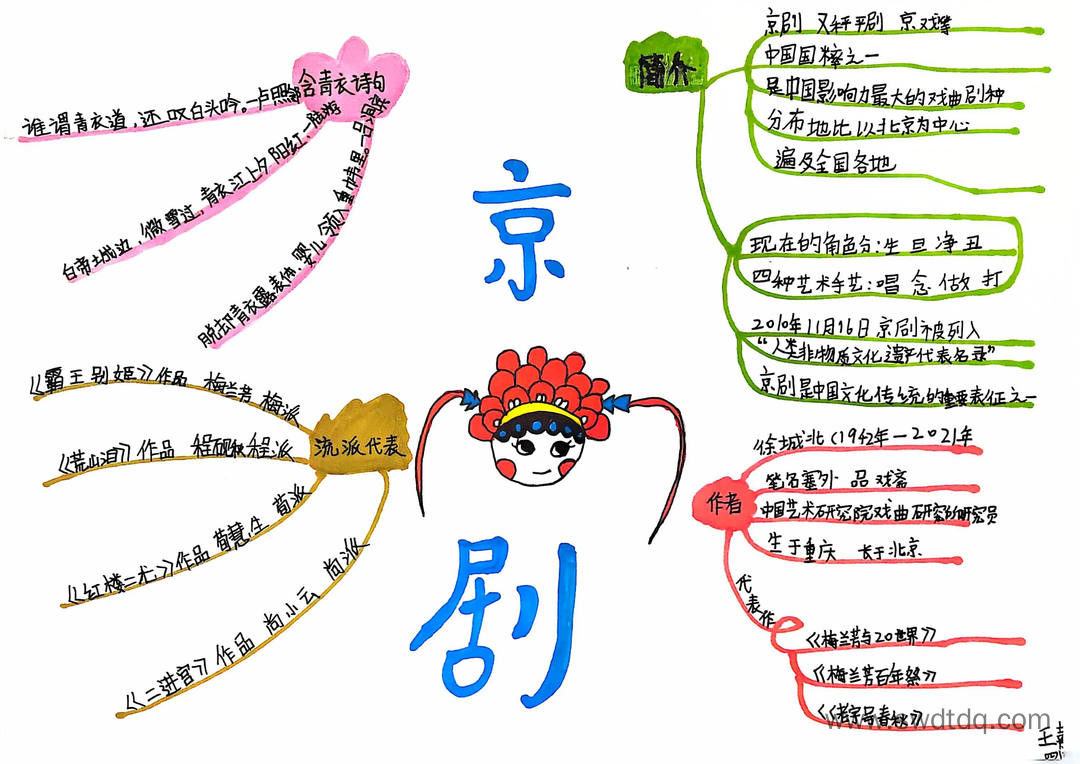 京剧
简介
京剧 又称平剧 京戏等
中国国粹之一
是中国影响力最大的戏曲剧种
分布地比以北京为中心
遍及全国各地
现在的角色分:生 旦 净 丑
四种艺术手艺:唱 念 做 打
2010年11月16日京剧被列入
“人类非物质文化遗产代表名录”
京剧是中国文化传统的重要表征之一
作者
徐城北(1942年—2021年
笔名塞外 品戏斋
中国艺术研究院戏曲研究的研究员
生于重庆 长于北京
代表作
《梅兰芳与20世界》
《梅兰芳百年祭》
《老字号春秋》
含青衣诗句
谁谓青衣道,还叹白头吟。—卢照邻
白帝城边,微雪过,青衣江上夕阳红,—陆游
脱却青衣露表体,婴儿领入重帏里。—吕洞宾
流派代表
《霸王别姬》作品 梅兰芳 梅派
《荒山泪》作品 程砚秋 程派
《红楼二尤》作品 荀慧生 荀派
《二进宫》作品 尚小云 尚派
www.swdtdq.com